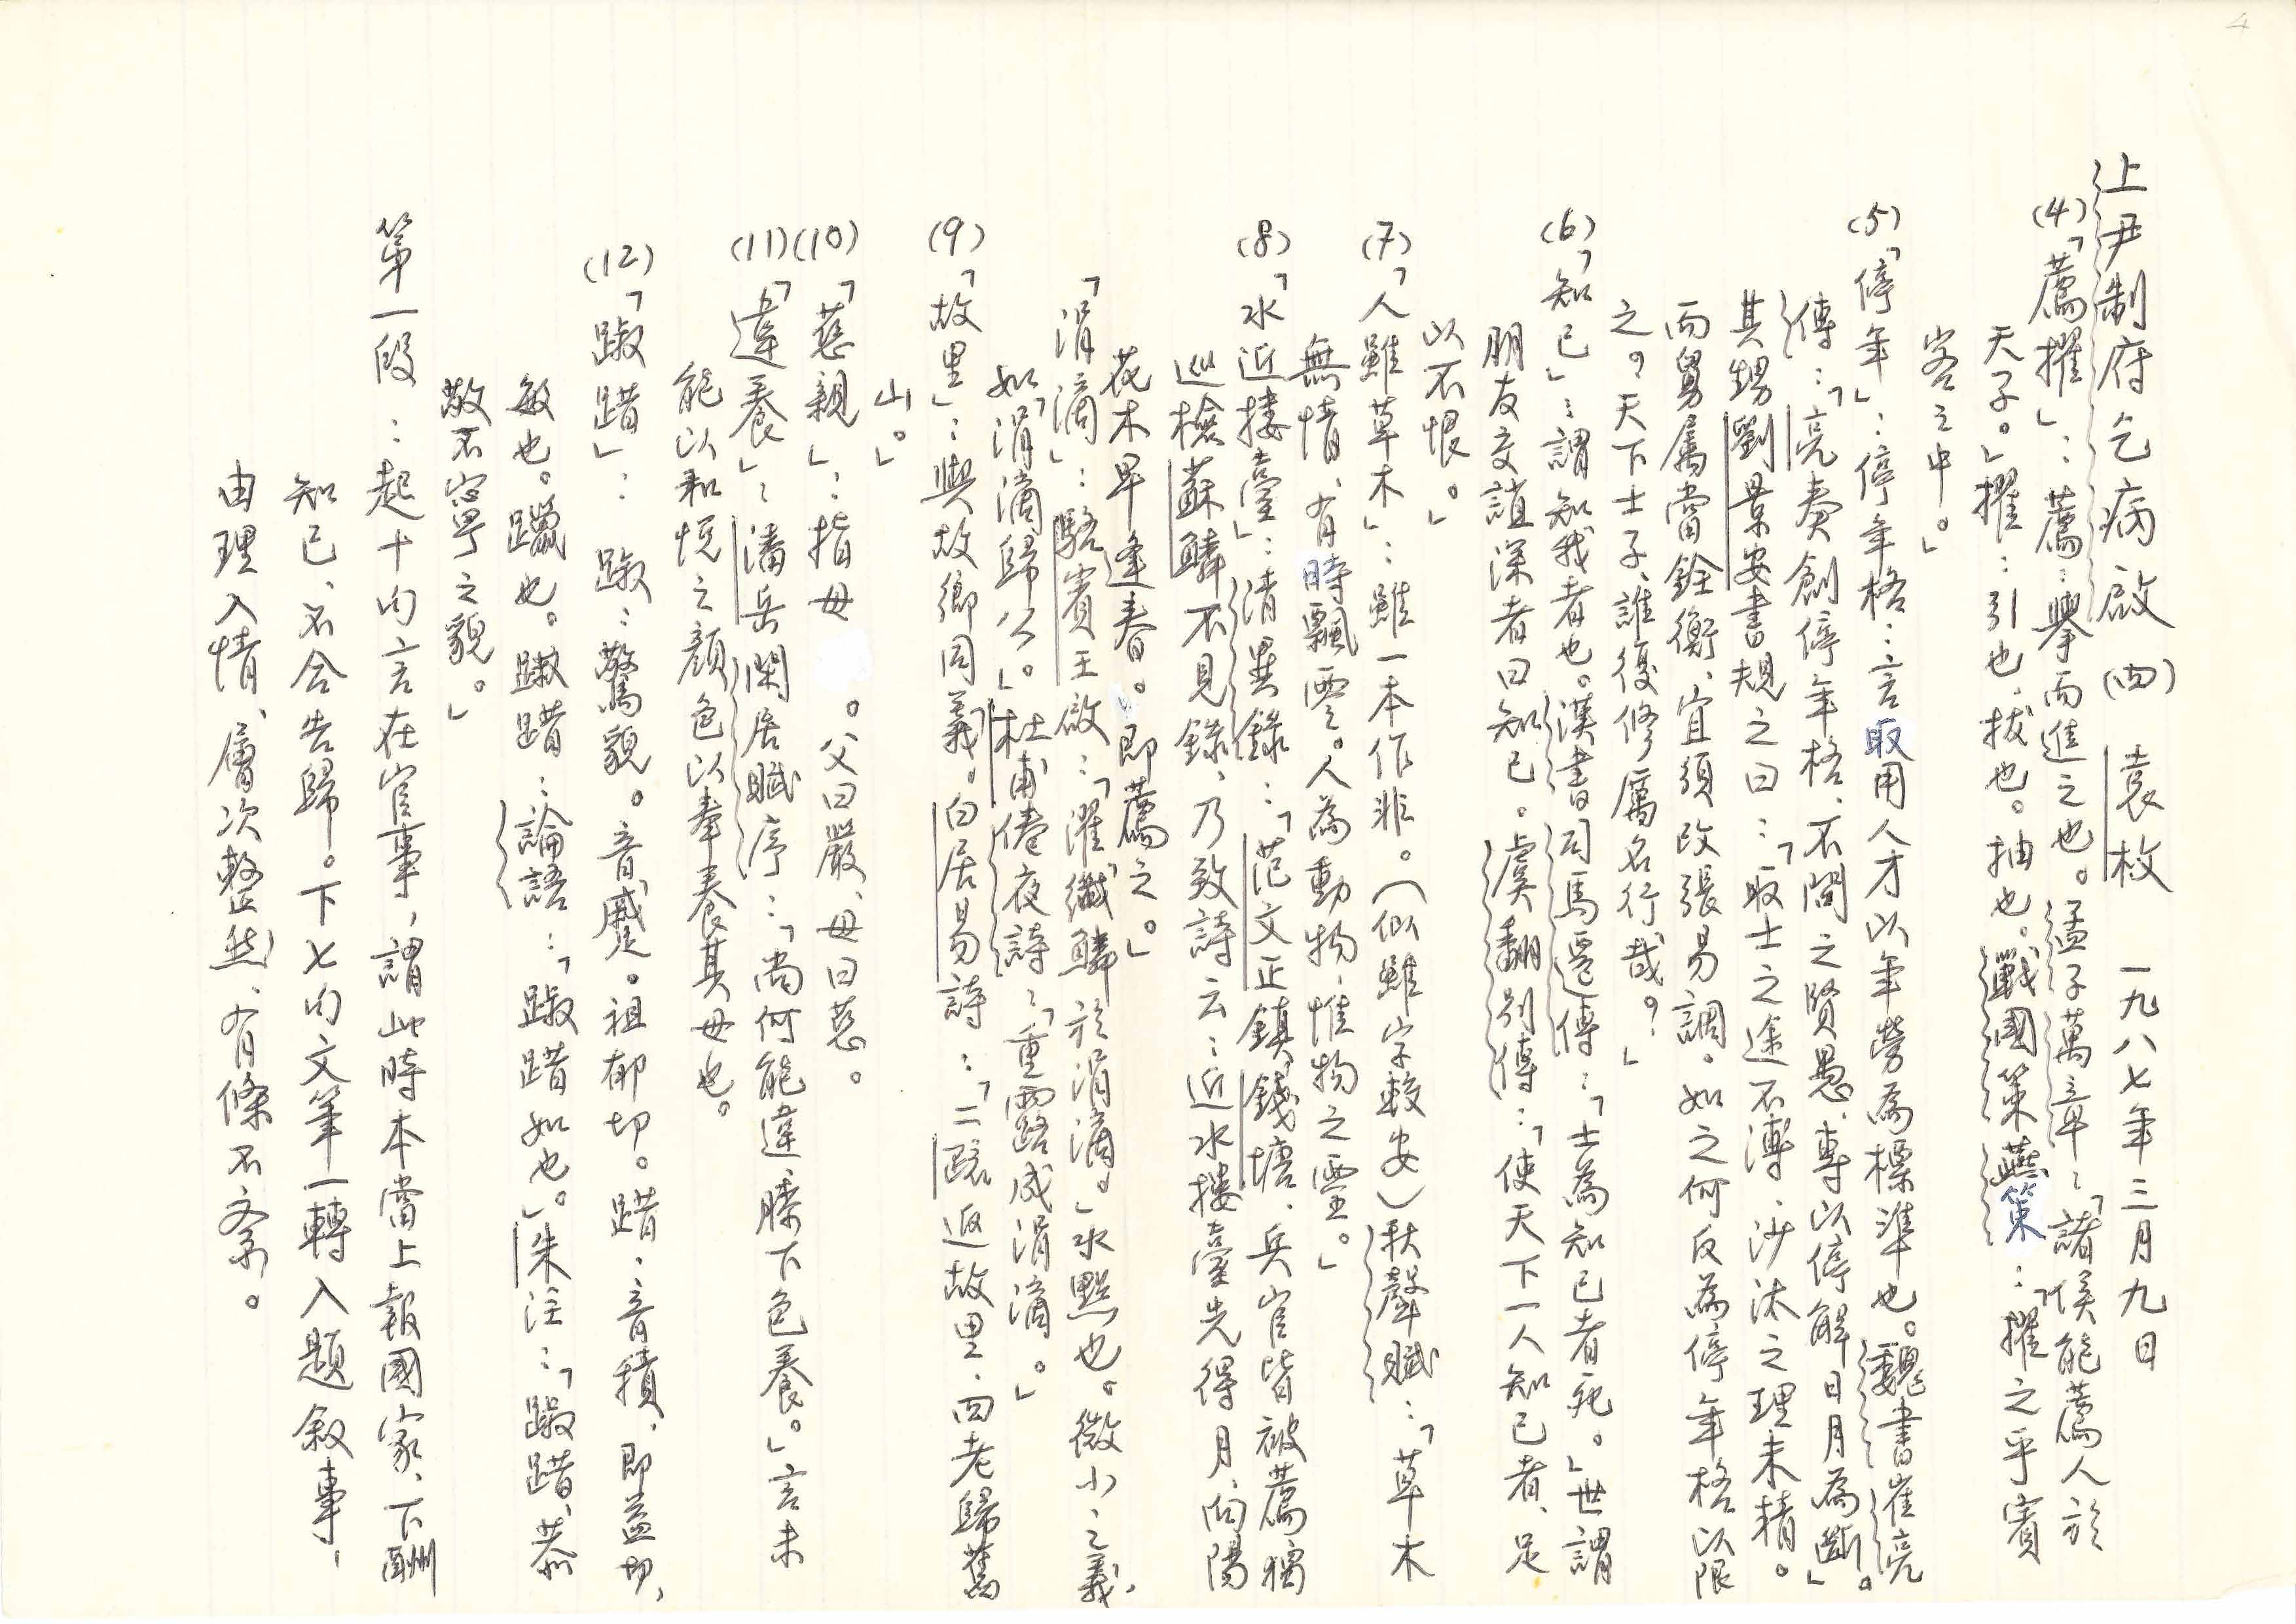 4
上尹制府乞病啟(四) 袁枚 一九八七年三月九日
(4)「薦擢」:薦:舉而進之也。孟子萬章:「諸侯能薦人於
天子。」擢:引也、拔也。抽也。戰國策燕策:「擢之乎賓
客之中。」
(5)「停年」:停年格:言取用人才以年勞為標準也。魏書崔亮
傳:「亮奏創停年格、不問之賢愚、專以停解日月為斷」。
其甥劉景安書規之曰:「取士之途不溥、沙汰之理未精。
而舅屬當銓衡、宜須改張易調。如之何反為停年格以限
之?天下士子、誰復修厲名行哉?」
(6)「知己」:謂知我者也。漢書司馬遷傳:「士為知己者死。」世謂
朋友交誼深者曰知己。虞翻別傳:「使天下一人知己者、足
以不恨。」
(7)「人雖草木」:雖一本作非。(似雖字較安)秋聲賦:「草木
無情、有時飄零。人為動物、惟物之靈。」
(8)「水近樓臺」:清異錄:「范文正鎮錢塘、兵官皆被薦獨
巡檢蘇麟不見錄、乃致詩云:近水樓臺先得月、向陽
花木早逢春。即薦之。」
「涓滴」:駱賓王啟:「濯纖鱗於涓滴。」水點也。微小之義、
如「涓滴歸公。」杜甫倦夜詩:「重露成涓滴。」
(9)「故里」:與故鄉同義。白居易詩:「二疏返故里、四老歸舊
山。」
(10)「慈親」:指母。父曰嚴、母曰慈。
(11)「違養」:潘岳閑居賦序:「尚何能違膝下色養。」言未
能以和悅之顏色以奉養其母也。
(12)「踧踖」:踧:驚貌。音蹙。祖郁切。踖:音積、即益切、
敏也。躐也。踧踖:論語:「踧踖如也。」朱注:「踧踖、恭
敬不寧之貌。」
第一段:起十句言在官事,謂此時本當上報國家、下酬
知己、不合告歸。下七句文筆一轉入題敘事,
由理入情、層次整然、有條不紊。